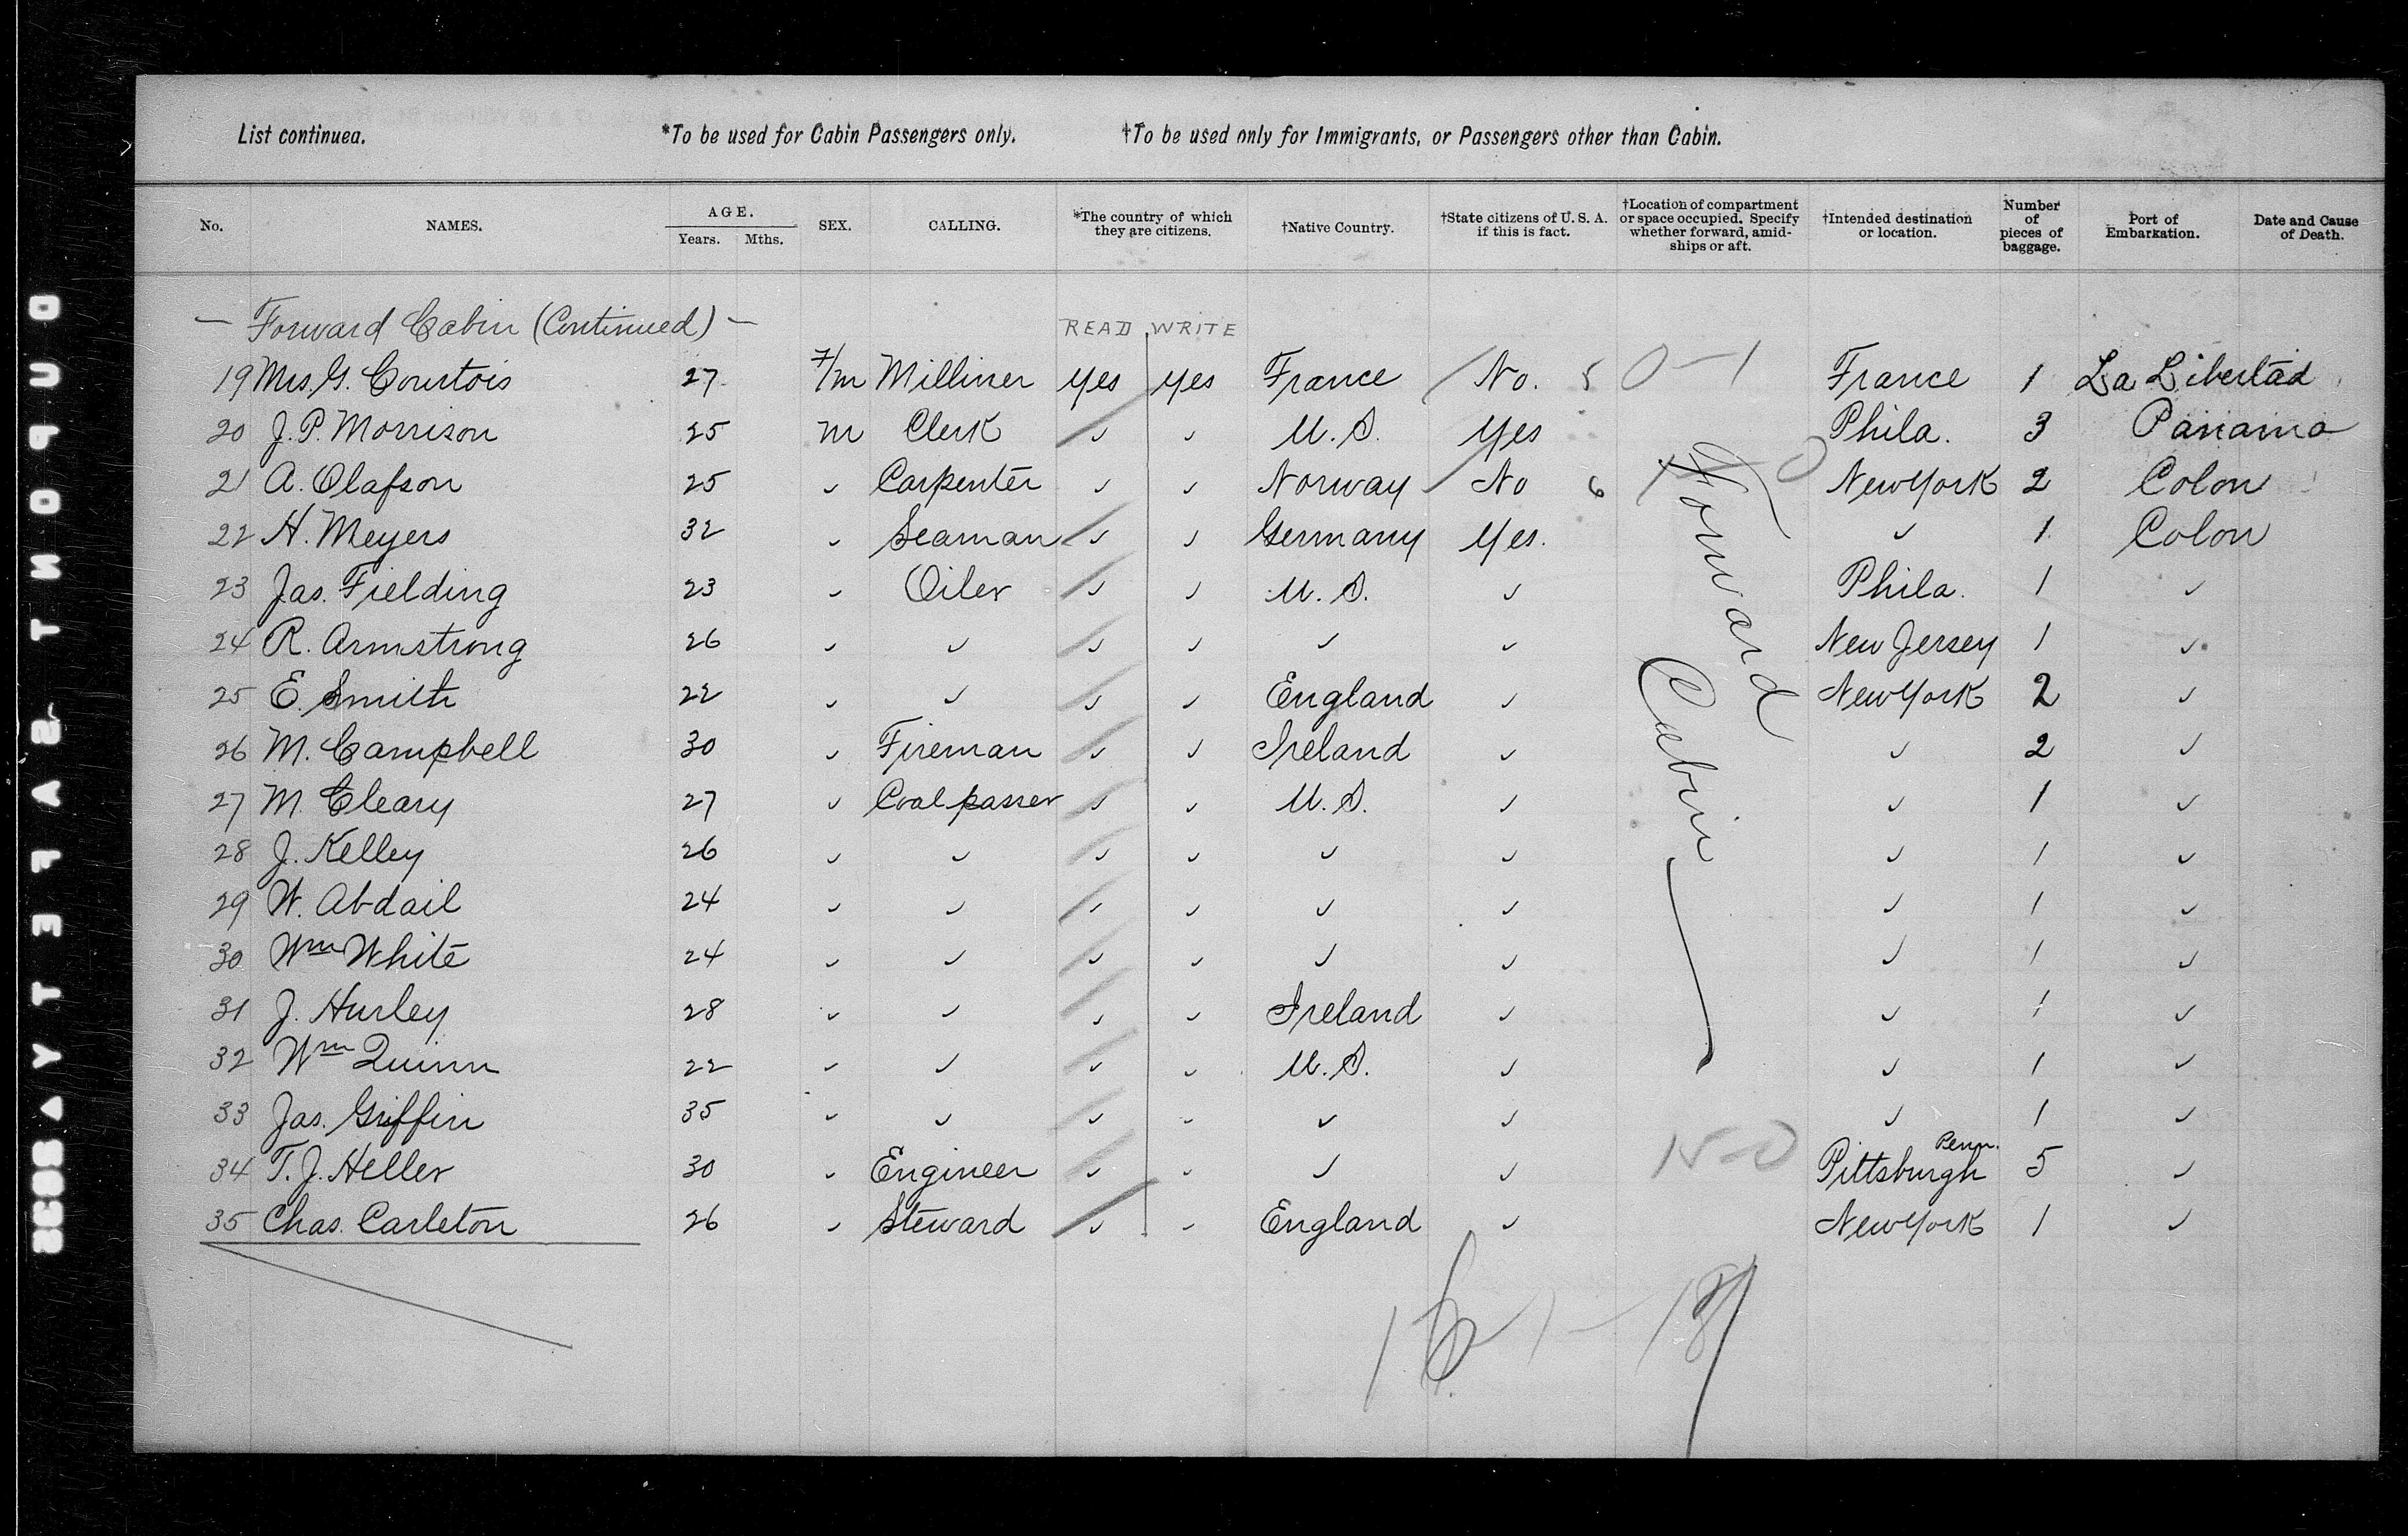 List continued. *To be used for Cabin Passengers only. †To be used only for Immigrants, or Passengers other than Cabin.
No. NAMES. AGE. Years. Mths. SEX. CALLING. *The country of which they are citizens. †Native Country. †State citizens of U. S. A. if this is fact. †Location of compartment or space occupied. Specify whether forward, amidships or aft. †Intended destination or location. Number of pieces of baggage. Port of Embarkation. Date and Cause of Death.
— Forward Cabin (Continued) — READ WRITE
19 Mrs. G. Courtois 27 Milliner yes yes France No. 5 0-1 France 1 La Libertad
20 J. P. Morrison 25 m Clerk ✓ ✓ U. S. Yes Phila. 3 Panama
21 A. Olafson 25 ✓ Carpenter ✓ ✓ Norway No 6 New York 2 Colon
22 H. Meyers 32 ✓ Seaman ✓ ✓ Germany Yes. ✓ 1 Colon
23 Jas. Fielding 23 ✓ Oiler ✓ ✓ U. S. ✓ Phila. 1 ✓
24 R. Armstrong 26 ✓ ✓ ✓ ✓ ✓ ✓ New Jersey 1 ✓
25 E. Smith 22 ✓ ✓ ✓ ✓ England ✓ New York 2 ✓
26 M. Campbell 30 ✓ Fireman ✓ ✓ Ireland ✓ ✓ 2 ✓
27 M. Cleary 27 ✓ Coal passer ✓ ✓ U. S. ✓ ✓ 1 ✓
28 J. Kelley 26 ✓ ✓ ✓ ✓ ✓ ✓ ✓ 1 ✓
29 W. Abdail 24 ✓ ✓ ✓ ✓ ✓ ✓ ✓ 1 ✓
30 Wm White 24 ✓ ✓ ✓ ✓ ✓ ✓ ✓ 1 ✓
31 J. Hurley 28 ✓ ✓ ✓ ✓ Ireland ✓ ✓ 1 ✓
32 Wm Quinn 22 ✓ ✓ ✓ ✓ U. S. ✓ ✓ 1 ✓
33 Jas. Griffin 35 ✓ ✓ ✓ ✓ ✓ ✓ ✓ 1 ✓
34 T. J. Heller 30 ✓ Engineer ✓ ✓ ✓ ✓ 15-0 Pittsburgh Penn. 5 ✓
35 Chas. Carleton 26 ✓ Steward ✓ ✓ England ✓ New York 1 ✓
Forward Cabin